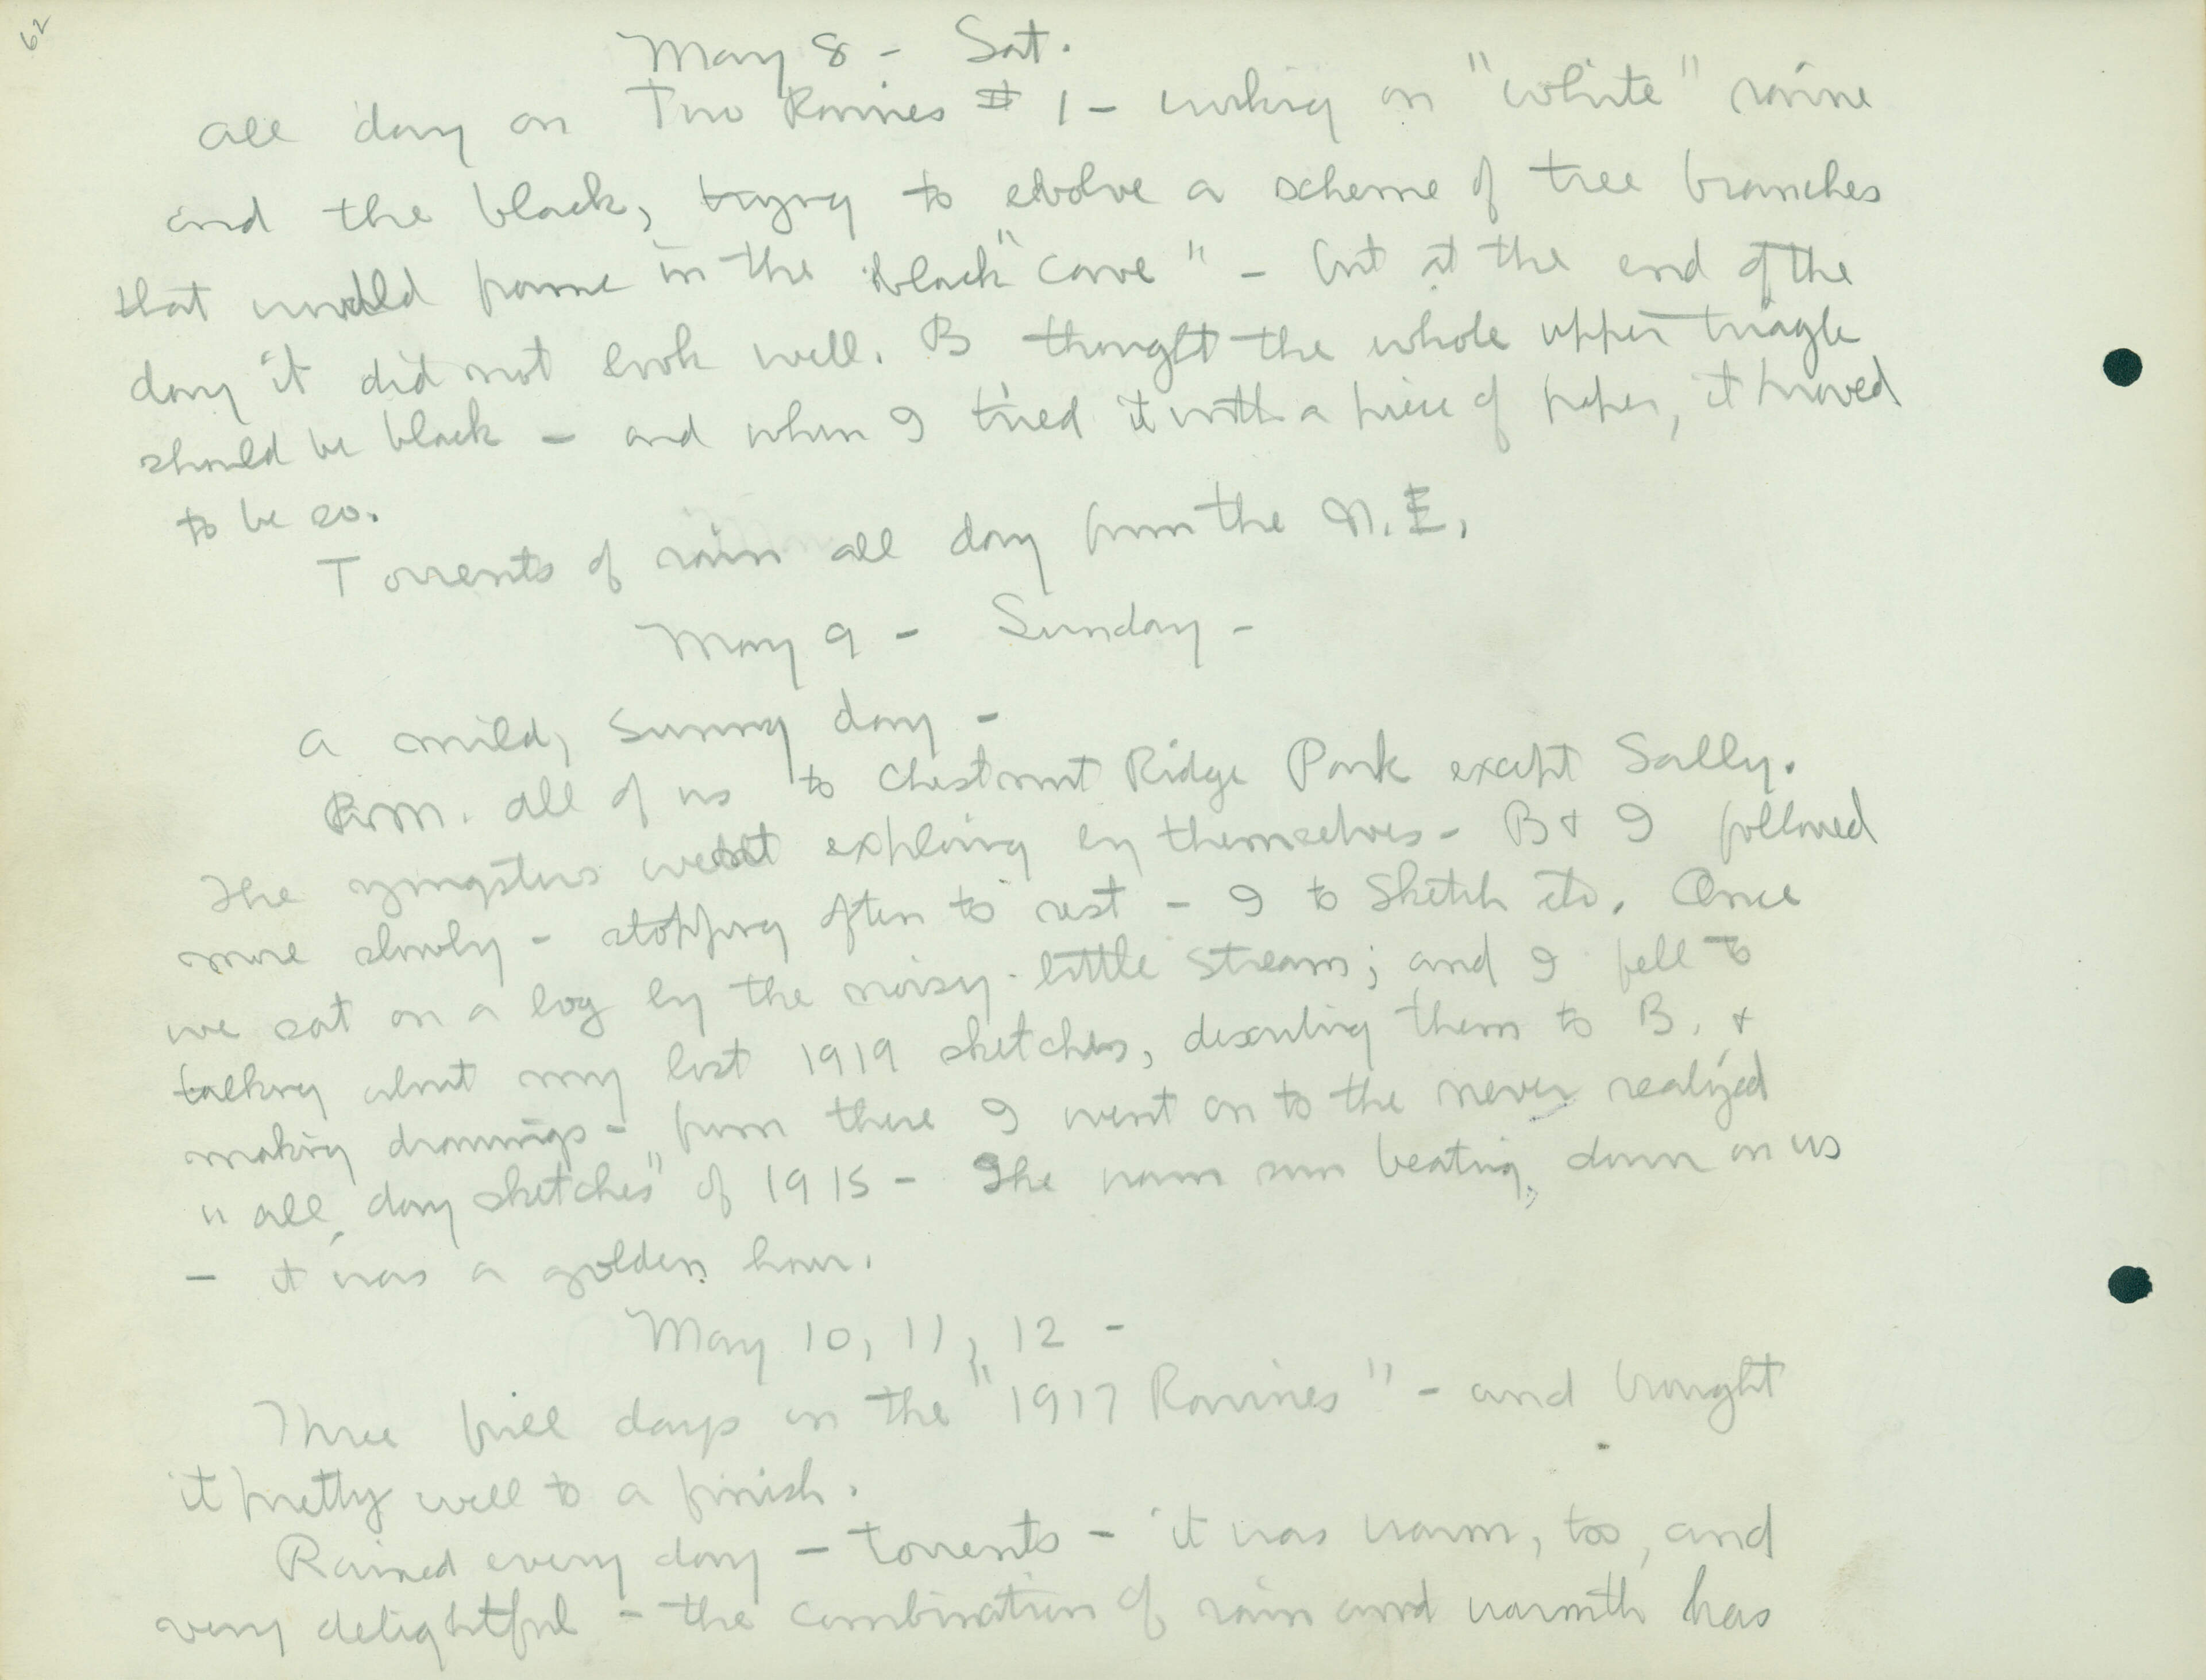 62
May 8 - Sat.
All day on Two Ravines # 1 - working on "white" ravine
and the black, trying to evolve a scheme of tree branches
that would frame in the black "cave" - but at the end of the
day it did not look well. B thought the whole upper triagle
should be black - and when I tried it with a piece of paper, it proved
to be so.
Torrents of rain all day from the N.E.
May 9 - Sunday -
A mild, sunny day -
P.M. all of us to Chestnut Ridge Park except Sally.
The yongsters went exploring by themselves - B & I followed
more slowly - stopping often to rest - I to sketch etc. Once
we sat on a log by the noisy little stream; and I fell to
talking about my lost 1919 sketches, describing them to B. &
making drawings - from there I went on to the never realized
"all day sketches" of 1915 - The warm sun beating down on us
- it was a golden hour.
May 10, 11, 12 -
Three full days on the "1917 Ravines" - and brought
it pretty well to a finish.
Rained every day - torrents - it was warm, too, and
very delightful - the combination of rain and warmth has